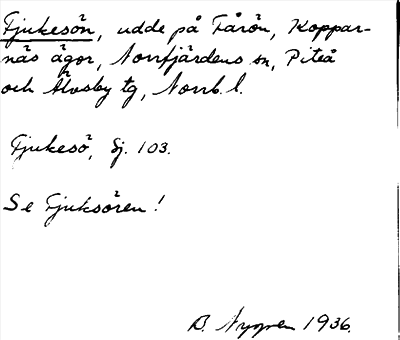 Tjukesön, udde på Fårön, Koppar-
näs ägor, Norrfjärdens sn, Piteå
och Älvsby tg, Norrb. l.
Tjukesö, Sj. 103.
Se Tjuksören!
B. Nygren 1936.